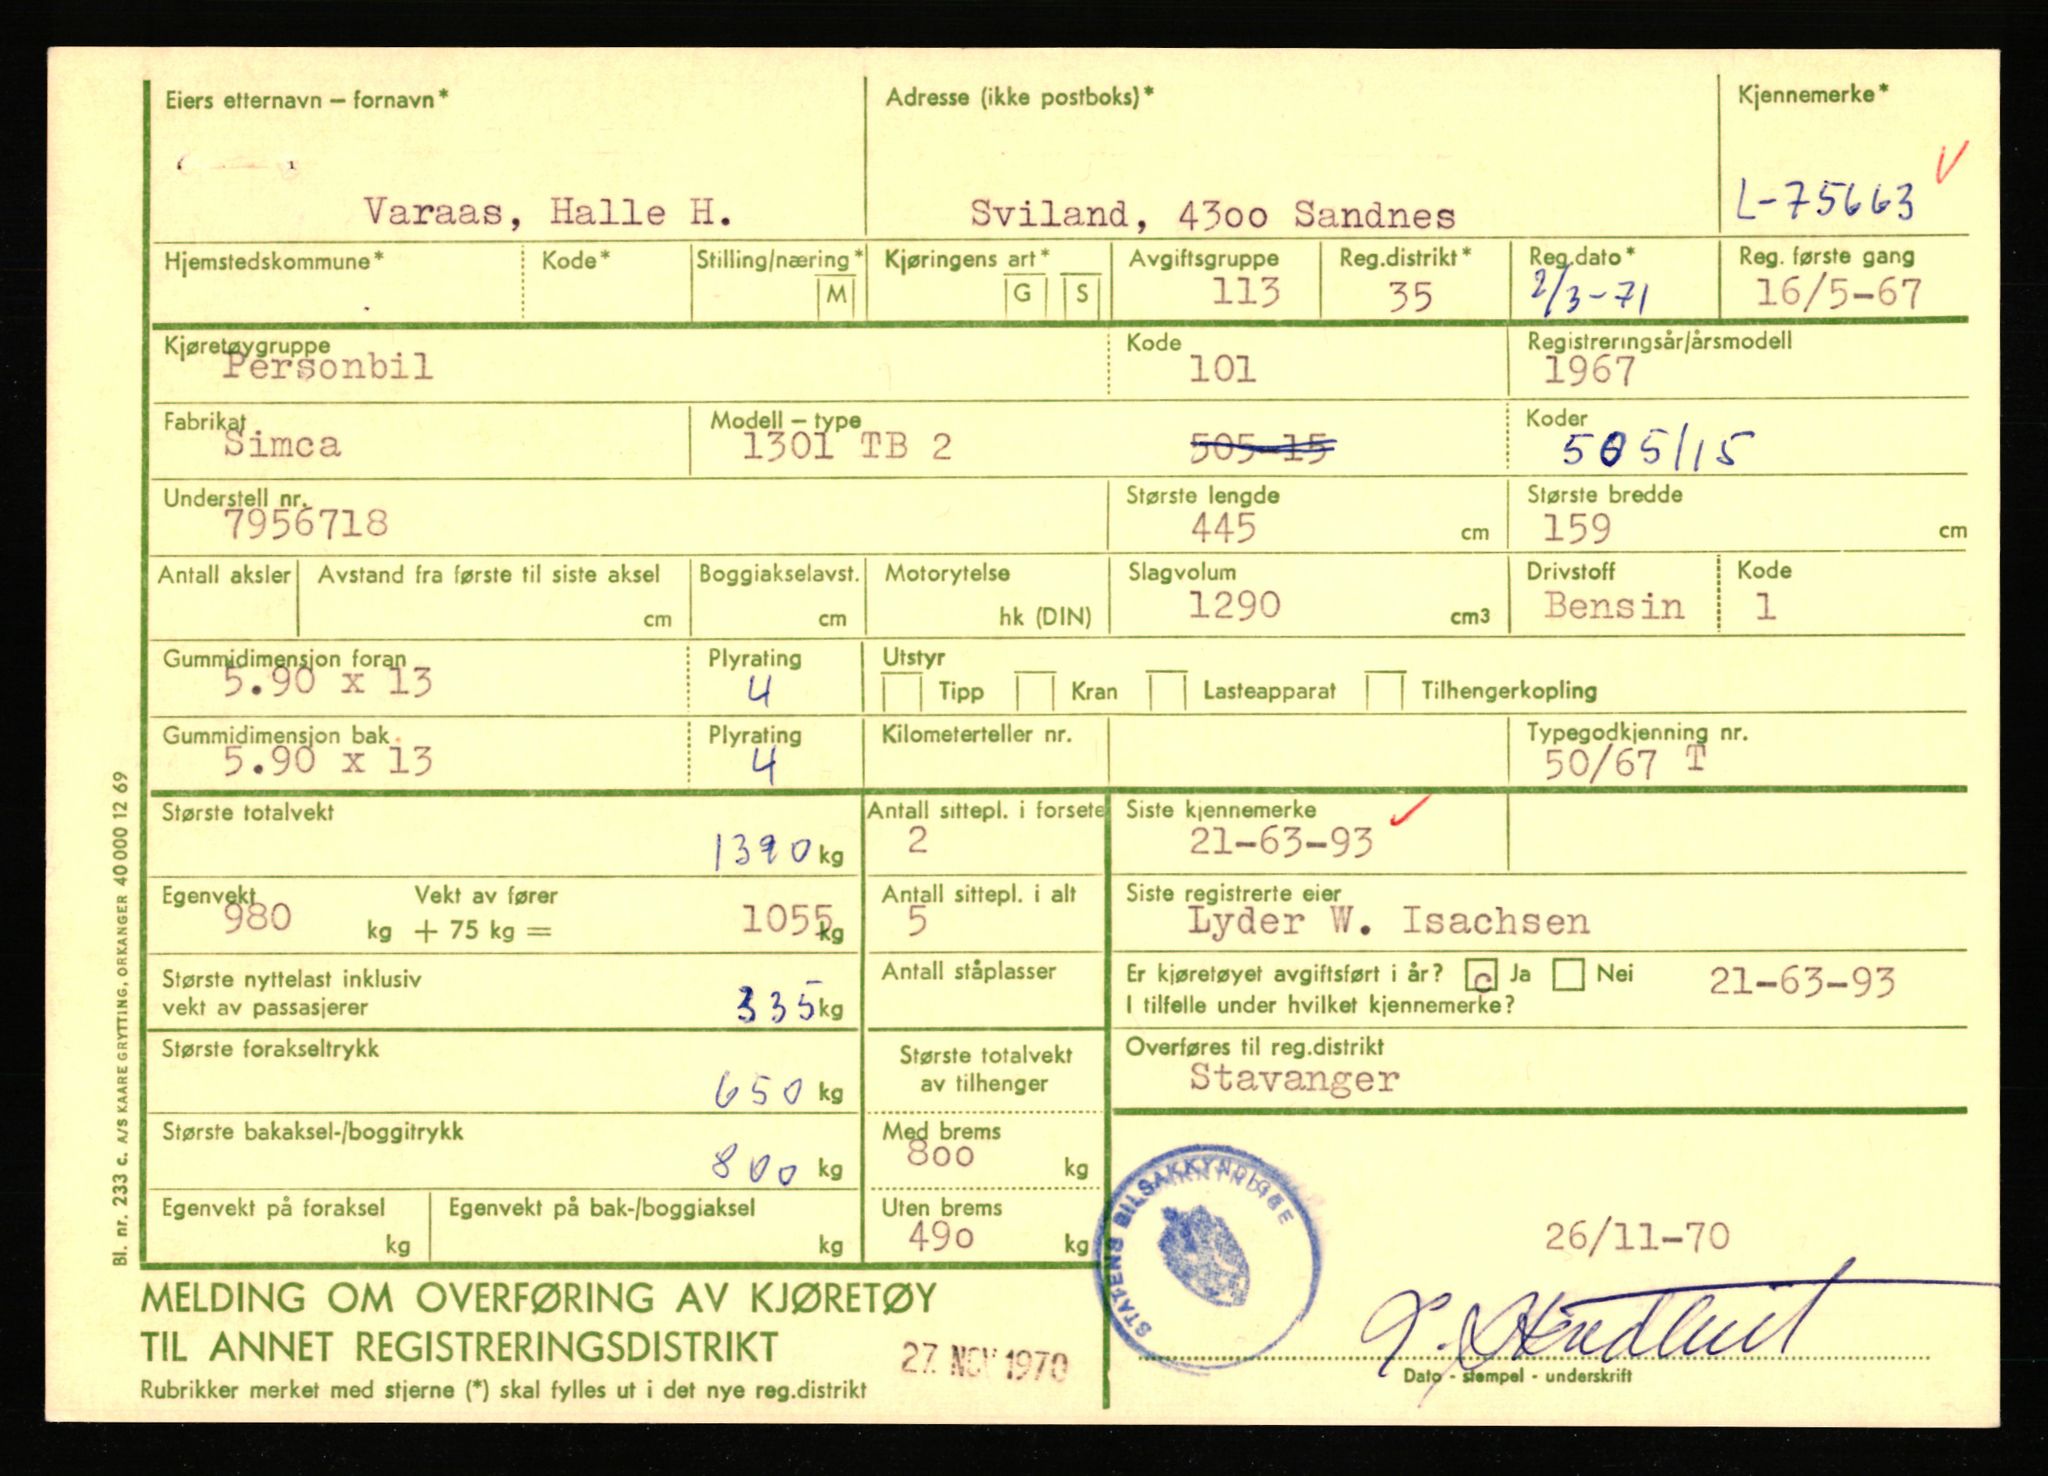 Eiers etternavn – fornavn* Adresse (ikke postboks)* Kjennemerke*
Varaas, Halle H. Sviland, 4300 Sandnes L-75663
Hjemstedskommune* Kode* Stilling/næring* Kjøringens art* Avgiftsgruppe Reg.distrikt* Reg.dato* Reg. første gang
M G S 113 35 2/3-71 16/5-67
Kjøretøygruppe Kode Registreringsår/årsmodell
Personbil 101 1967
Fabrikat Modell – type Koder
Simca 1301 TB 2 505-15 505/15
Understell nr. Største lengde Største bredde
7956718 445 cm 159 cm
Antall aksler Avstand fra første til siste aksel Boggiakselavst. Motorytelse Slagvolum Drivstoff Kode
cm cm hk (DIN) 1290 cm3 Bensin 1
Gummidimensjon foran Plyrating Utstyr
5.90 x 13 4 Tipp Kran Lasteapparat Tilhengerkopling
Gummidimensjon bak Plyrating Kilometerteller nr. Typegodkjenning nr.
5.90 x 13 4 50/67 T
Største totalvekt Antall sittepl. i forsete Siste kjennemerke
1390 kg 2 21-63-93
Egenvekt Vekt av fører Antall sittepl. i alt Siste registrerte eier
980 kg + 75 kg = 1055 kg 5 Lyder W. Isachsen
Største nyttelast inklusiv Antall ståplasser Er kjøretøyet avgiftsført i år? c Ja Nei 21-63-93
vekt av passasjerer 335 kg I tilfelle under hvilket kjennemerke?
Største forakseltrykk Største totalvekt Overføres til reg.distrikt
650 kg av tilhenger Stavanger
Største bakaksel-/boggitrykk Med brems
800 kg 800 kg
Egenvekt på foraksel Egenvekt på bak-/boggiaksel Uten brems
kg kg 490 kg
STATENS BILSAKKYNDIGE
26/11-70
MELDING OM OVERFØRING AV KJØRETØY
TIL ANNET REGISTRERINGSDISTRIKT 27. NOV 1970
Rubrikker merket med stjerne (*) skal fylles ut i det nye reg.distrikt Dato - stempel - underskrift
Bl. nr. 233 c. A/S KAARE GRYTTING, ORKANGER 40 000 12 69